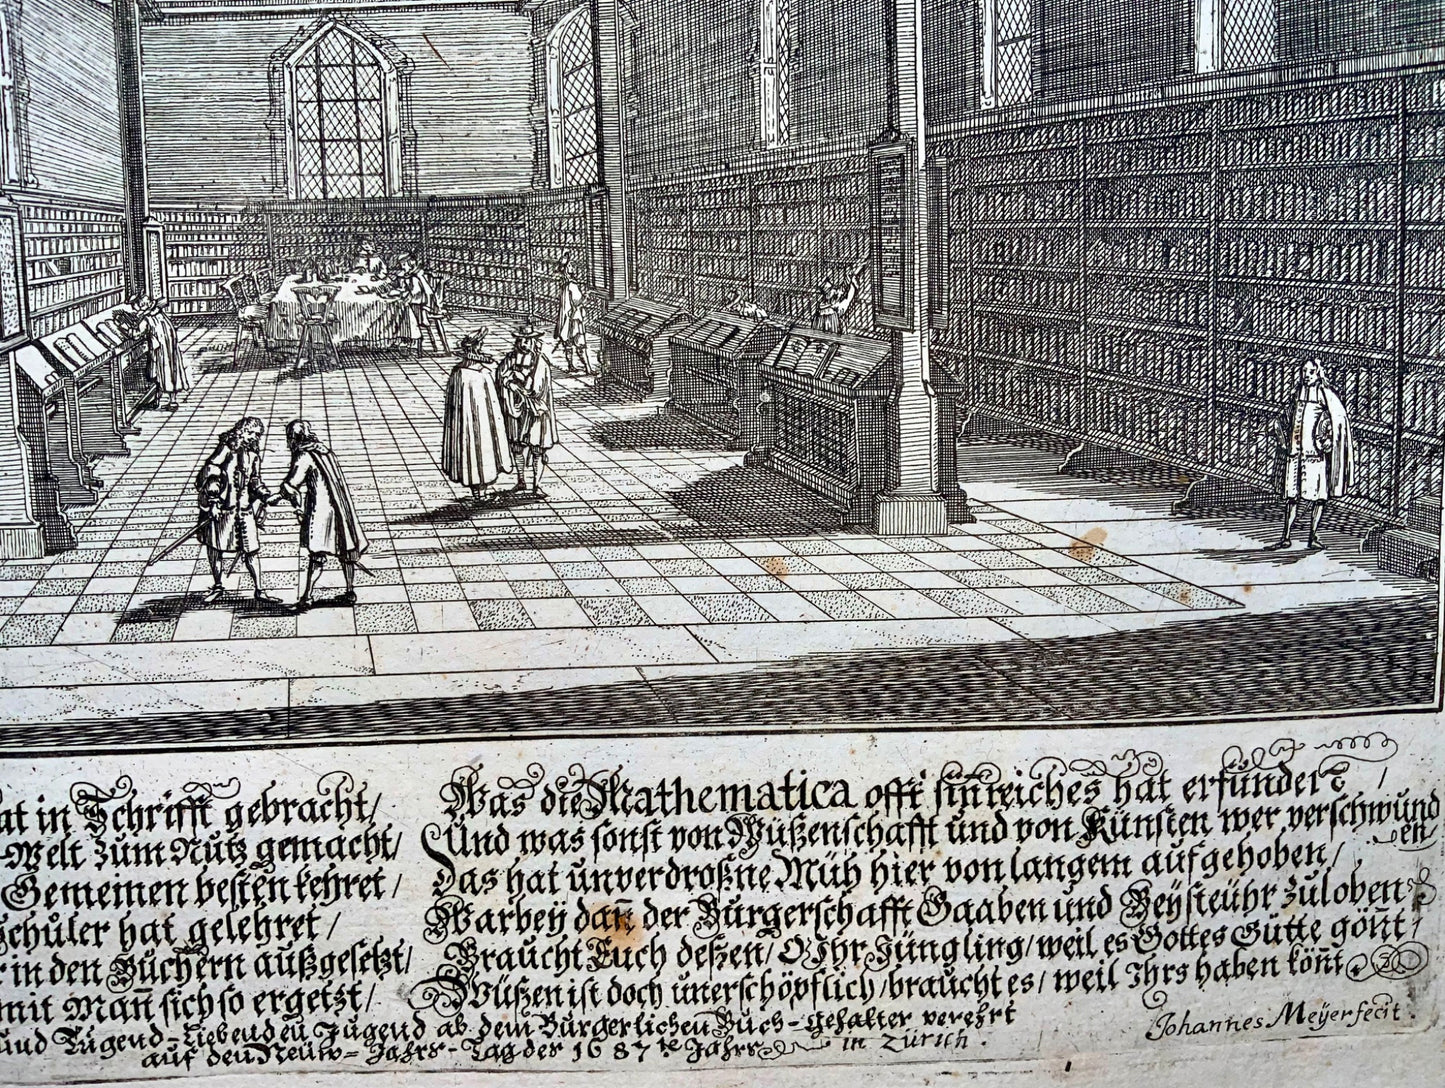 at in Schrifft gebracht/
-Welt zum Nutz gemacht/
Gemeinen besten kehret/
Schüler hat gelehret/
in den Büchern außgesetzt/
mit Mañ sich so ergetzt/
Was die Mathematica offt sinreiches hat erfunden/
Und was sonst von Wüßenschafft und von Künsten wer verschwünd
en/
Das hat unverdroßne Müh hier von langem aufgehoben/
Warbey dañ der Burgerschafft Gaaben und Beysteühr zuloben
Braucht Euch deßen/ O Ihr Jüngling/ weil es Gottes Gütte göñt/
Wüßen ist doch unerschöpflich/ braucht es/ weil Ihrs haben köñt.
und Tugend-Liebenden Jugend ab dem Burgerlichen Buch-Gehalter verehrt
auf den Neüw-Jahrs-Tag des 1687te Jahrs in Zürich.
Johannes Meÿer fecit.